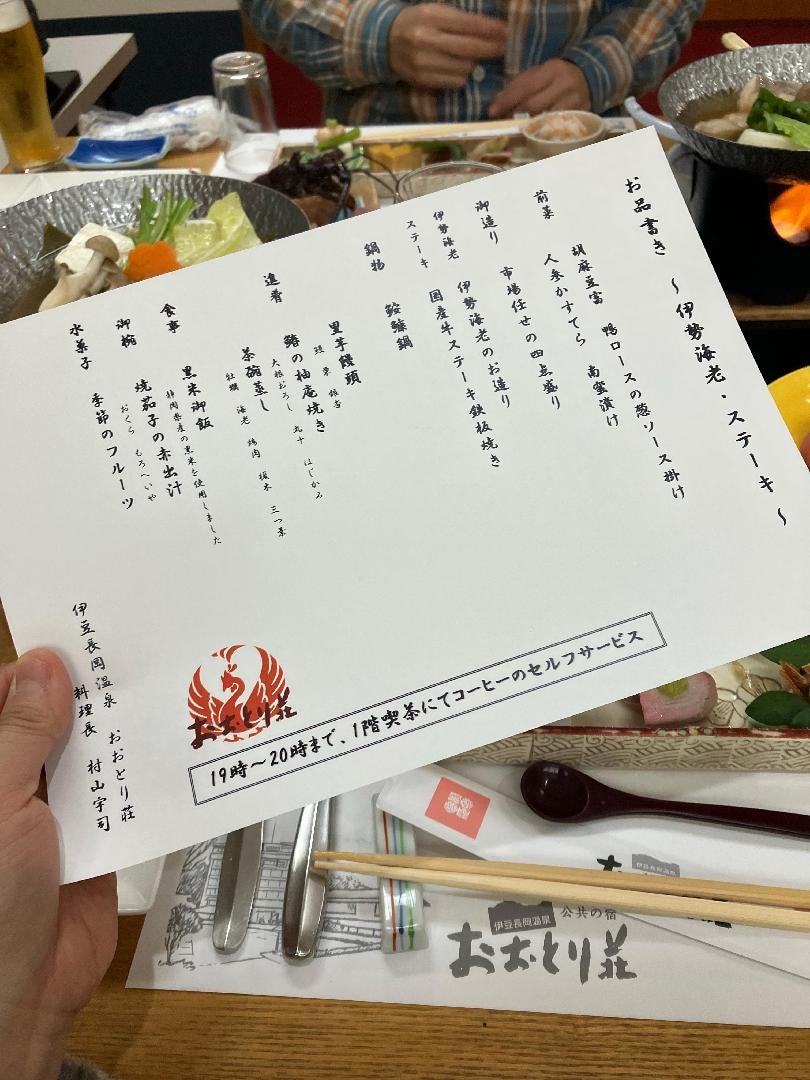 お品書き ～伊勢海老・ステーキ～
前菜
胡麻豆富 鴨ロースの葱ソース掛け
人参かすてら 南蛮漬け
御造り
市場任せの四点盛り
伊勢海老
伊勢海老のお造り
ステーキ
国産牛ステーキ鉄板焼き
鍋物
鮟鱇鍋
進肴
里芋饅頭
鰆の柚庵焼き
大根おろし 丸十 はじかみ
茶碗蒸し
牡蠣 海老 鶏肉 三つ葉
食事
黒米御飯
静岡県産の黒米を使用しました
御椀
焼茄子の赤出汁
おくら もろへいや
水菓子
季節のフルーツ
伊豆長岡温泉 おおとり荘
料理長 村山宇司
おおとり荘
19時～20時まで、1階喫茶にてコーヒーのセルフサービス
伊豆長岡温泉
公共の宿
おおとり荘